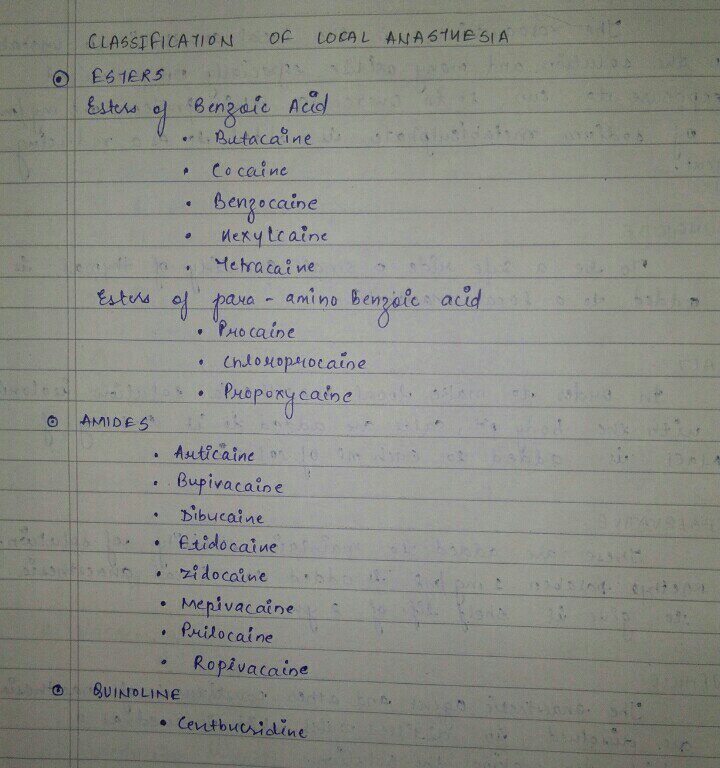 CLASSIFICATION OF LOCAL ANASTHESIA
ESTERS
Esters of Benzoic Acid
• Butacaine
• Cocaine
• Benzocaine
• Hexylcaine
• Tetracaine
Esters of para - amino Benzoic acid
• Procaine
• Chloroprocaine
• Propoxycaine
AMIDES
• Articaine
• Bupivacaine
• Dibucaine
• Etidocaine
• Lidocaine
• Mepivacaine
• Prilocaine
• Ropivacaine
QUINOLINE
• Centbucridine